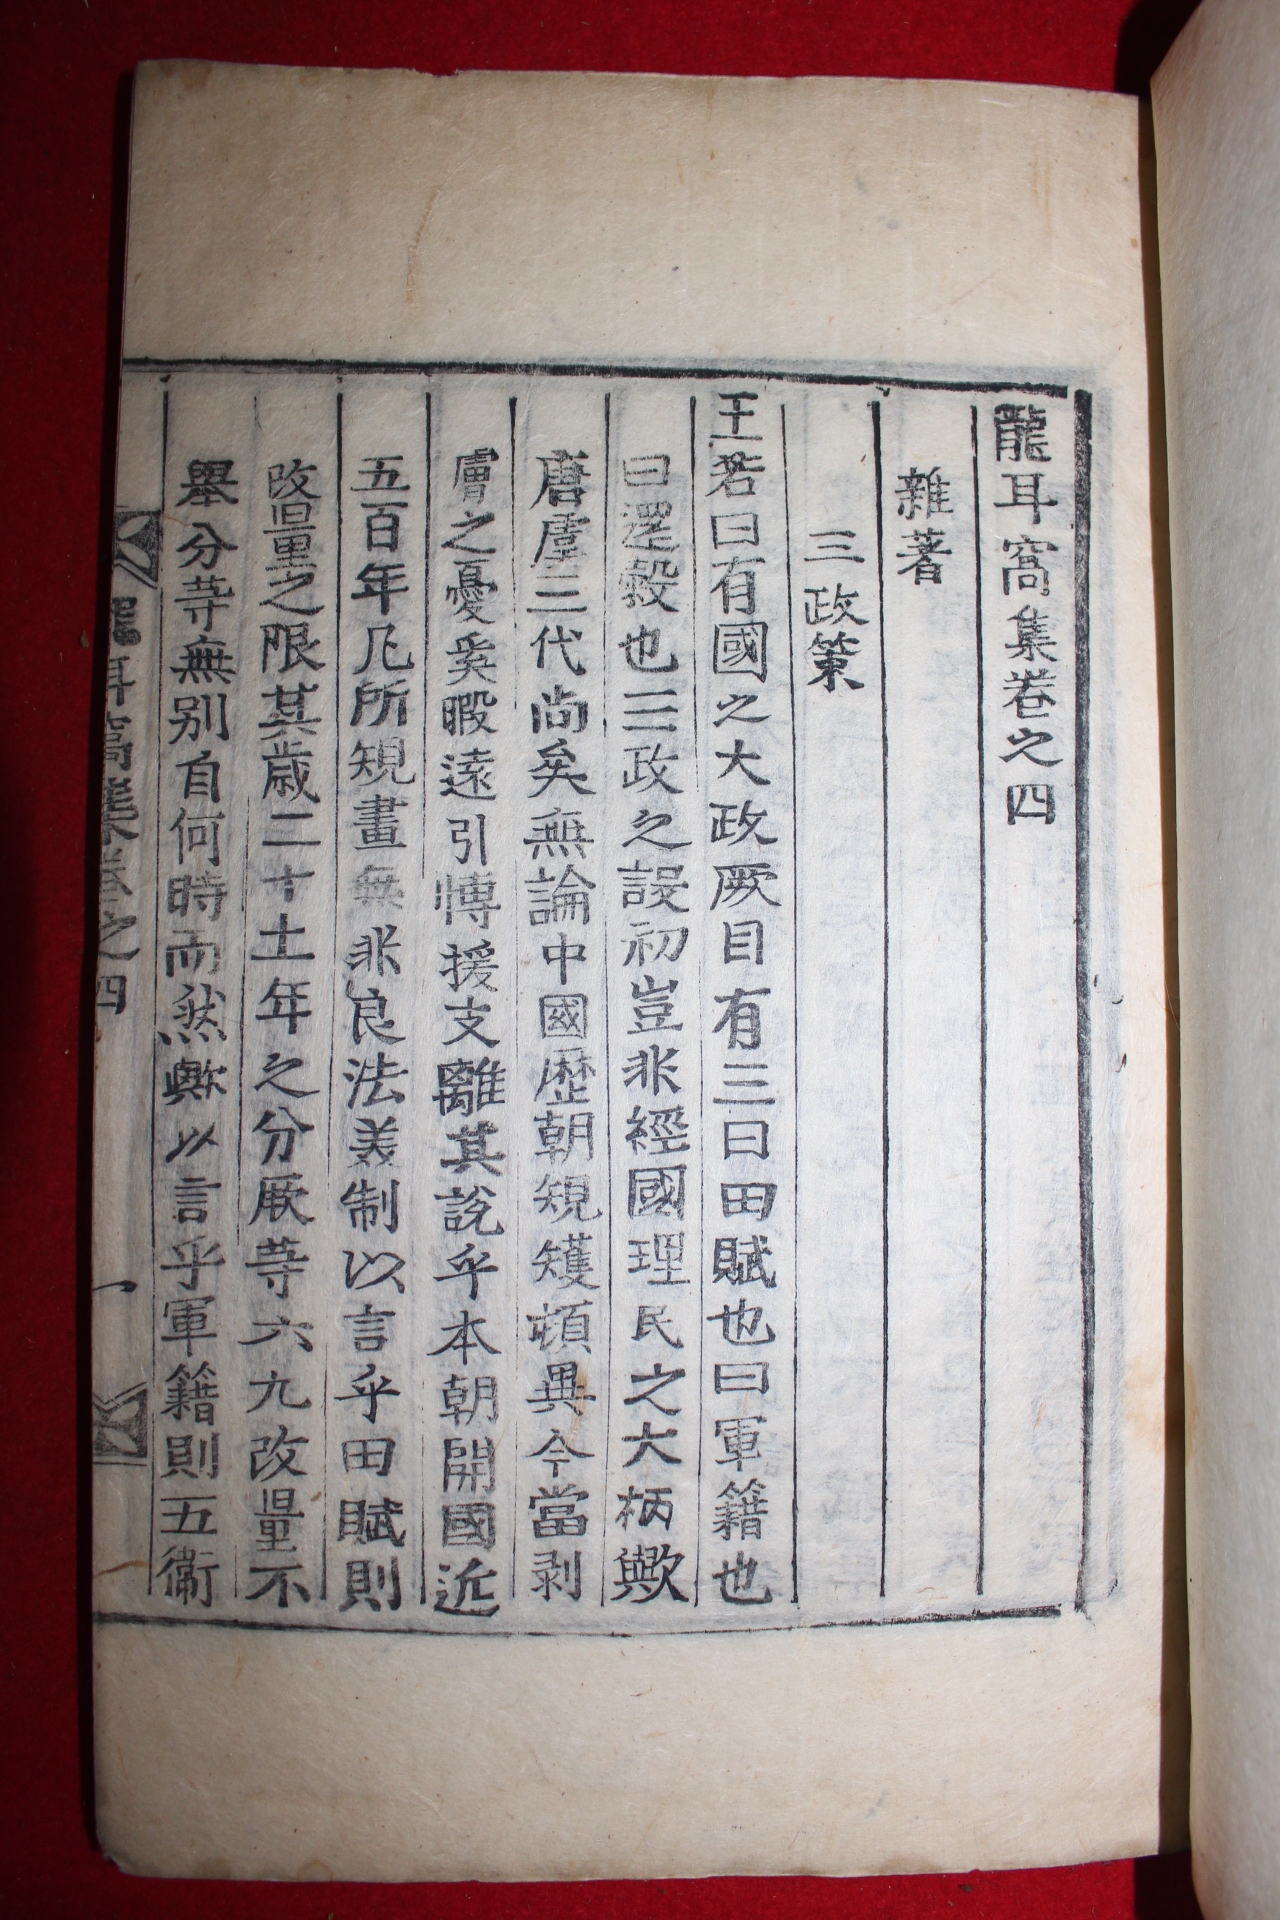 龍耳窩集卷之四
雜著
三政策
王若曰有國之大政厥目有三曰田賦也曰軍籍也
曰還糓也三政之設初豈非經國理民之大柄歟
唐虞三代尙矣無論中國歷朝規矱頓異今當剥
膚之憂奚暇遠引愽援支離其說乎本朝開國近
五百年凡所規畫無非良法美制以言乎田賦則
改量之限其歲二十土年之分厥等六九改量不
擧分等無别自何時而然歟以言乎軍籍則五衛
龍耳窩集卷之四
一